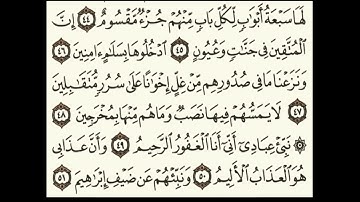 لَهَا سَبْعَةُ أَبْوَٰبٍ لِّكُلِّ بَابٍ مِّنْهُمْ جُزْءٌ مَّقْسُومٌ ٤٤ إِنَّ
ٱلْمُتَّقِينَ فِى جَنَّٰتٍ وَعُيُونٍ ٤٥ ٱدْخُلُوهَا بِسَلَٰمٍ ءَامِنِينَ ٤٦
وَنَزَعْنَا مَا فِى صُدُورِهِم مِّنْ غِلٍّ إِخْوَٰنًا عَلَىٰ سُرُرٍ مُّتَقَٰبِلِينَ
٤٧ لَا يَمَسُّهُمْ فِيهَا نَصَبٌ وَمَا هُم مِّنْهَا بِمُخْرَجِينَ ٤٨
۞ نَبِّئْ عِبَادِىٓ أَنِّىٓ أَنَا ٱلْغَفُورُ ٱلرَّحِيمُ ٤٩ وَأَنَّ عَذَابِى
هُوَ ٱلْعَذَابُ ٱلْأَلِيمُ ٥٠ وَنَبِّئْهُمْ عَن ضَيْفِ إِبْرَٰهِيمَ ٥١